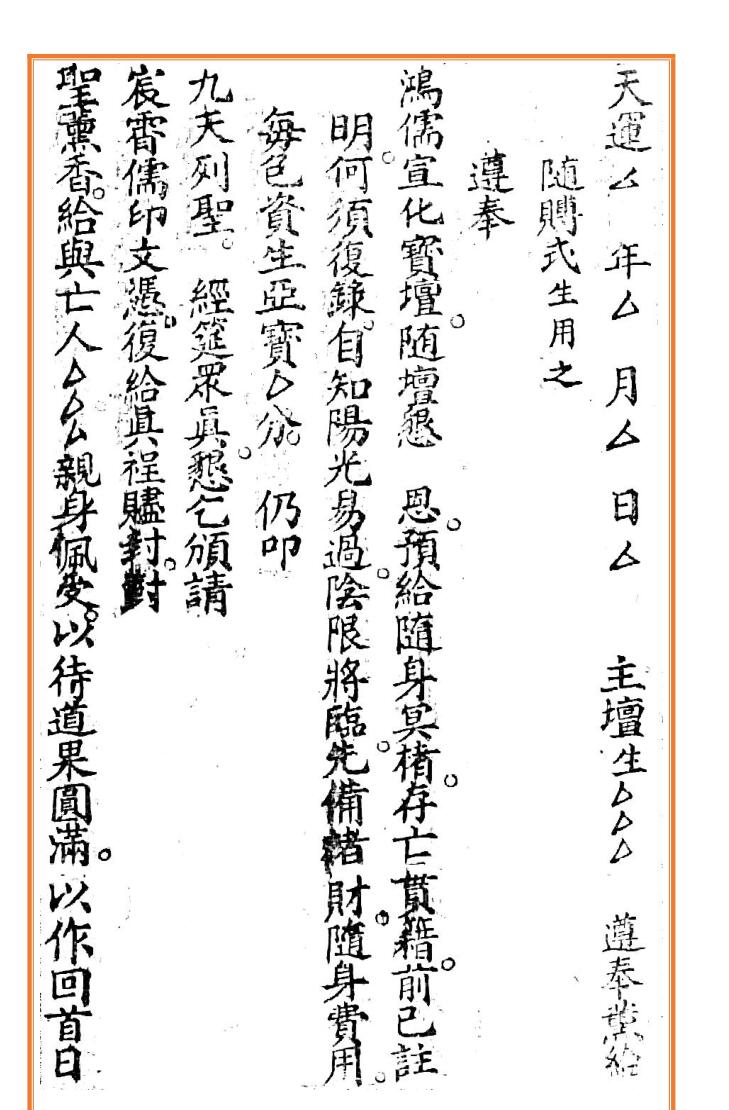 天運厶年厶月厶日厶　主壇生厶厶厶　遵奉薫給
随賻式生用之
遵奉
鴻儒宣化寶壇。随壇懇　恩。預給隨身冥楮。存亡貫籍。前已註
明。何須復錄。自知陽光易過。陰限將臨。先備楮財。隨身費用。
每色資生亞寶厶分。仍叩
九天列聖。經筵眾眞。懇乞頒請
宸霄儒印文憑。復給眞裎贐封。對
聖薰香。給與亡人厶厶厶親身佩受。以待道果圓滿。以作回首日